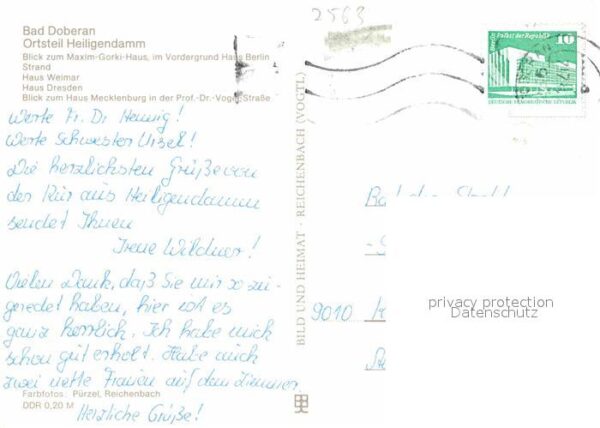 2563
Bad Doberan
Ortsteil Heiligendamm
Blick zum Maxim-Gorki-Haus, im Vordergrund Haus Berlin
Strand
Haus Weimar
Haus Dresden
Blick zum Haus Mecklenburg in der Prof.-Dr.-Vogel-Straße
Berlin, Palast der Republik
10
DEUTSCHE DEMOKRATISCHE REPUBLIK
Werte Fr. Dr. Hennig!
Werte Schwester Ursel!
Die herzlichsten Grüße von
der Kur aus Heiligendamm
sendet Ihnen
Irene Wildner!
Vielen Dank, daß Sie mir so zu-
geredet haben, hier ist es
ganz herrlich. Ich habe mich
schon gut erholt. Habe auch
zwei nette Frauen auf dem Zimmer.
Herzliche Grüße!
Farbfotos: Pürzel, Reichenbach
DDR 0,20 M
BILD UND HEIMAT · REICHENBACH (VOGTL)
9010
privacy protection
Datenschutz